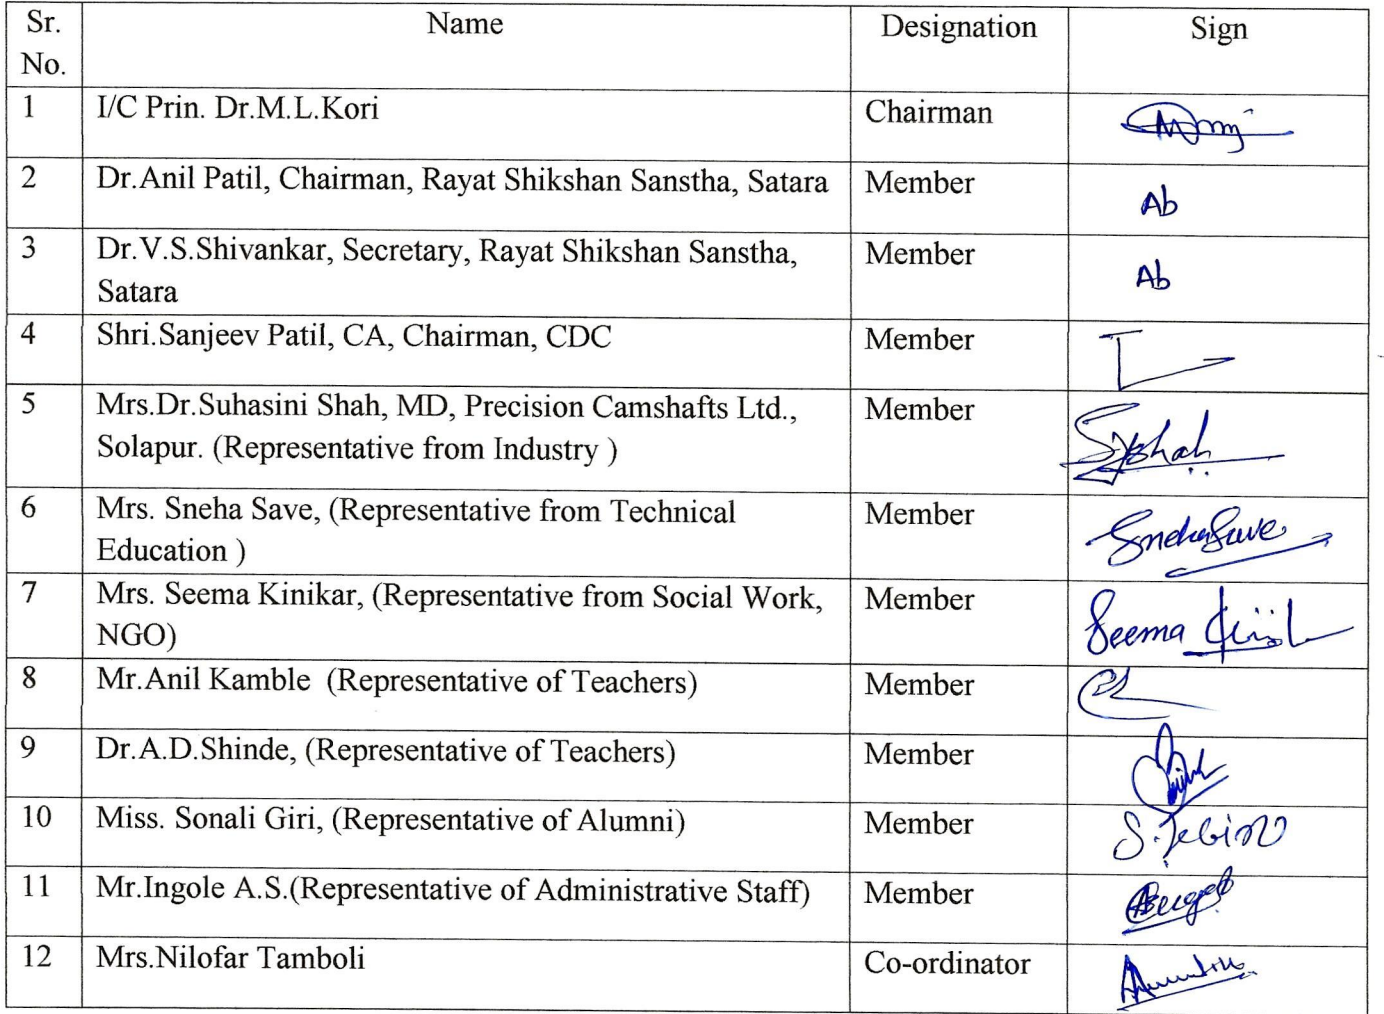 Sr. Name Designation Sign
No.
1 I/C Prin. Dr.M.L.Kori Chairman
2 Dr.Anil Patil, Chairman, Rayat Shikshan Sanstha, Satara Member Ab
3 Dr.V.S.Shivankar, Secretary, Rayat Shikshan Sanstha, Member Ab
Satara
4 Shri.Sanjeev Patil, CA, Chairman, CDC Member
5 Mrs.Dr.Suhasini Shah, MD, Precision Camshafts Ltd., Member
Solapur. (Representative from Industry )
6 Mrs. Sneha Save, (Representative from Technical Member SnehaSave
Education )
7 Mrs. Seema Kinikar, (Representative from Social Work, Member Seema
NGO)
8 Mr.Anil Kamble (Representative of Teachers) Member
9 Dr.A.D.Shinde, (Representative of Teachers) Member
10 Miss. Sonali Giri, (Representative of Alumni) Member
11 Mr.Ingole A.S.(Representative of Administrative Staff) Member
12 Mrs.Nilofar Tamboli Co-ordinator